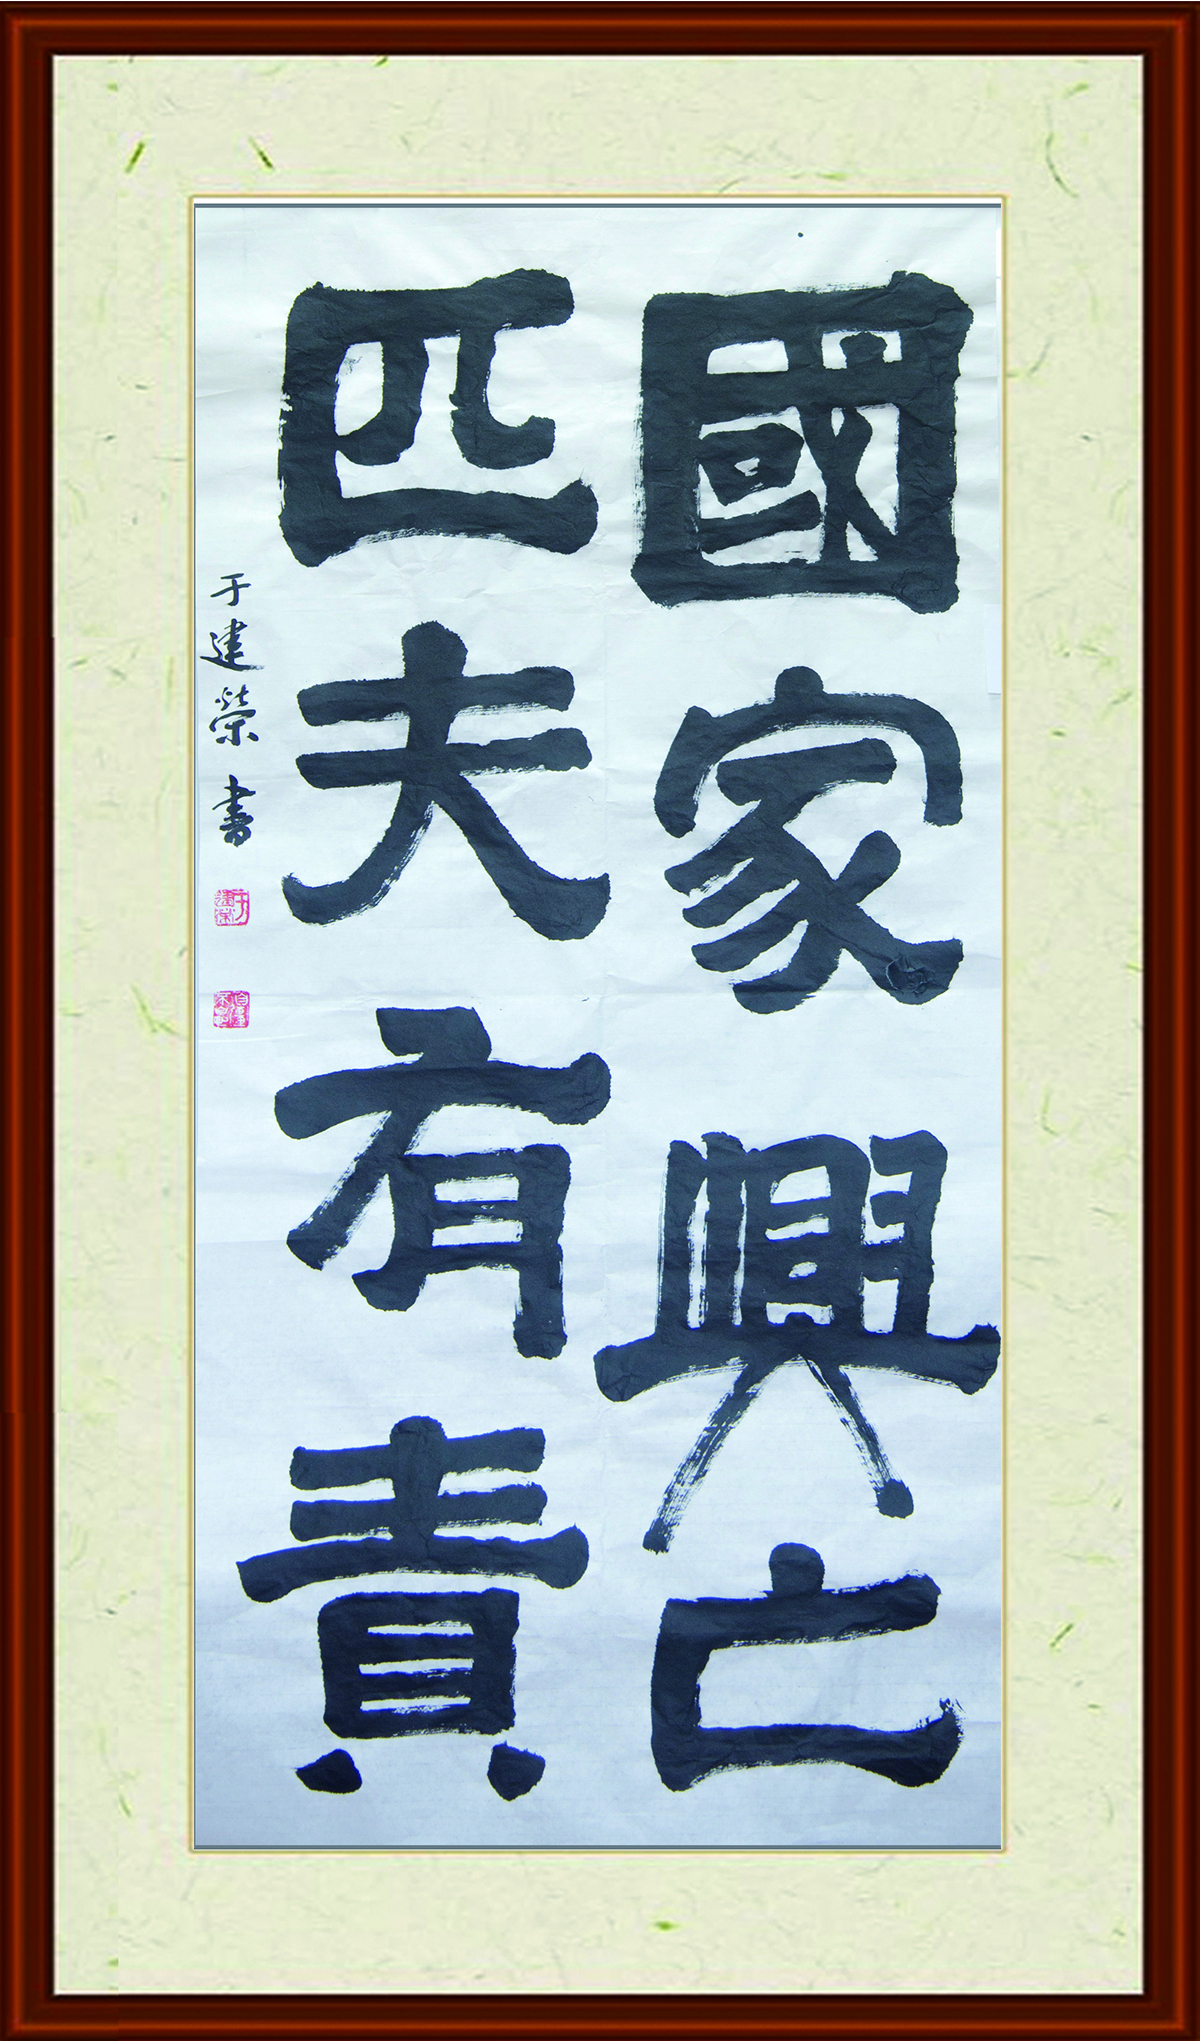 國家興亡
匹夫有責
于建榮書